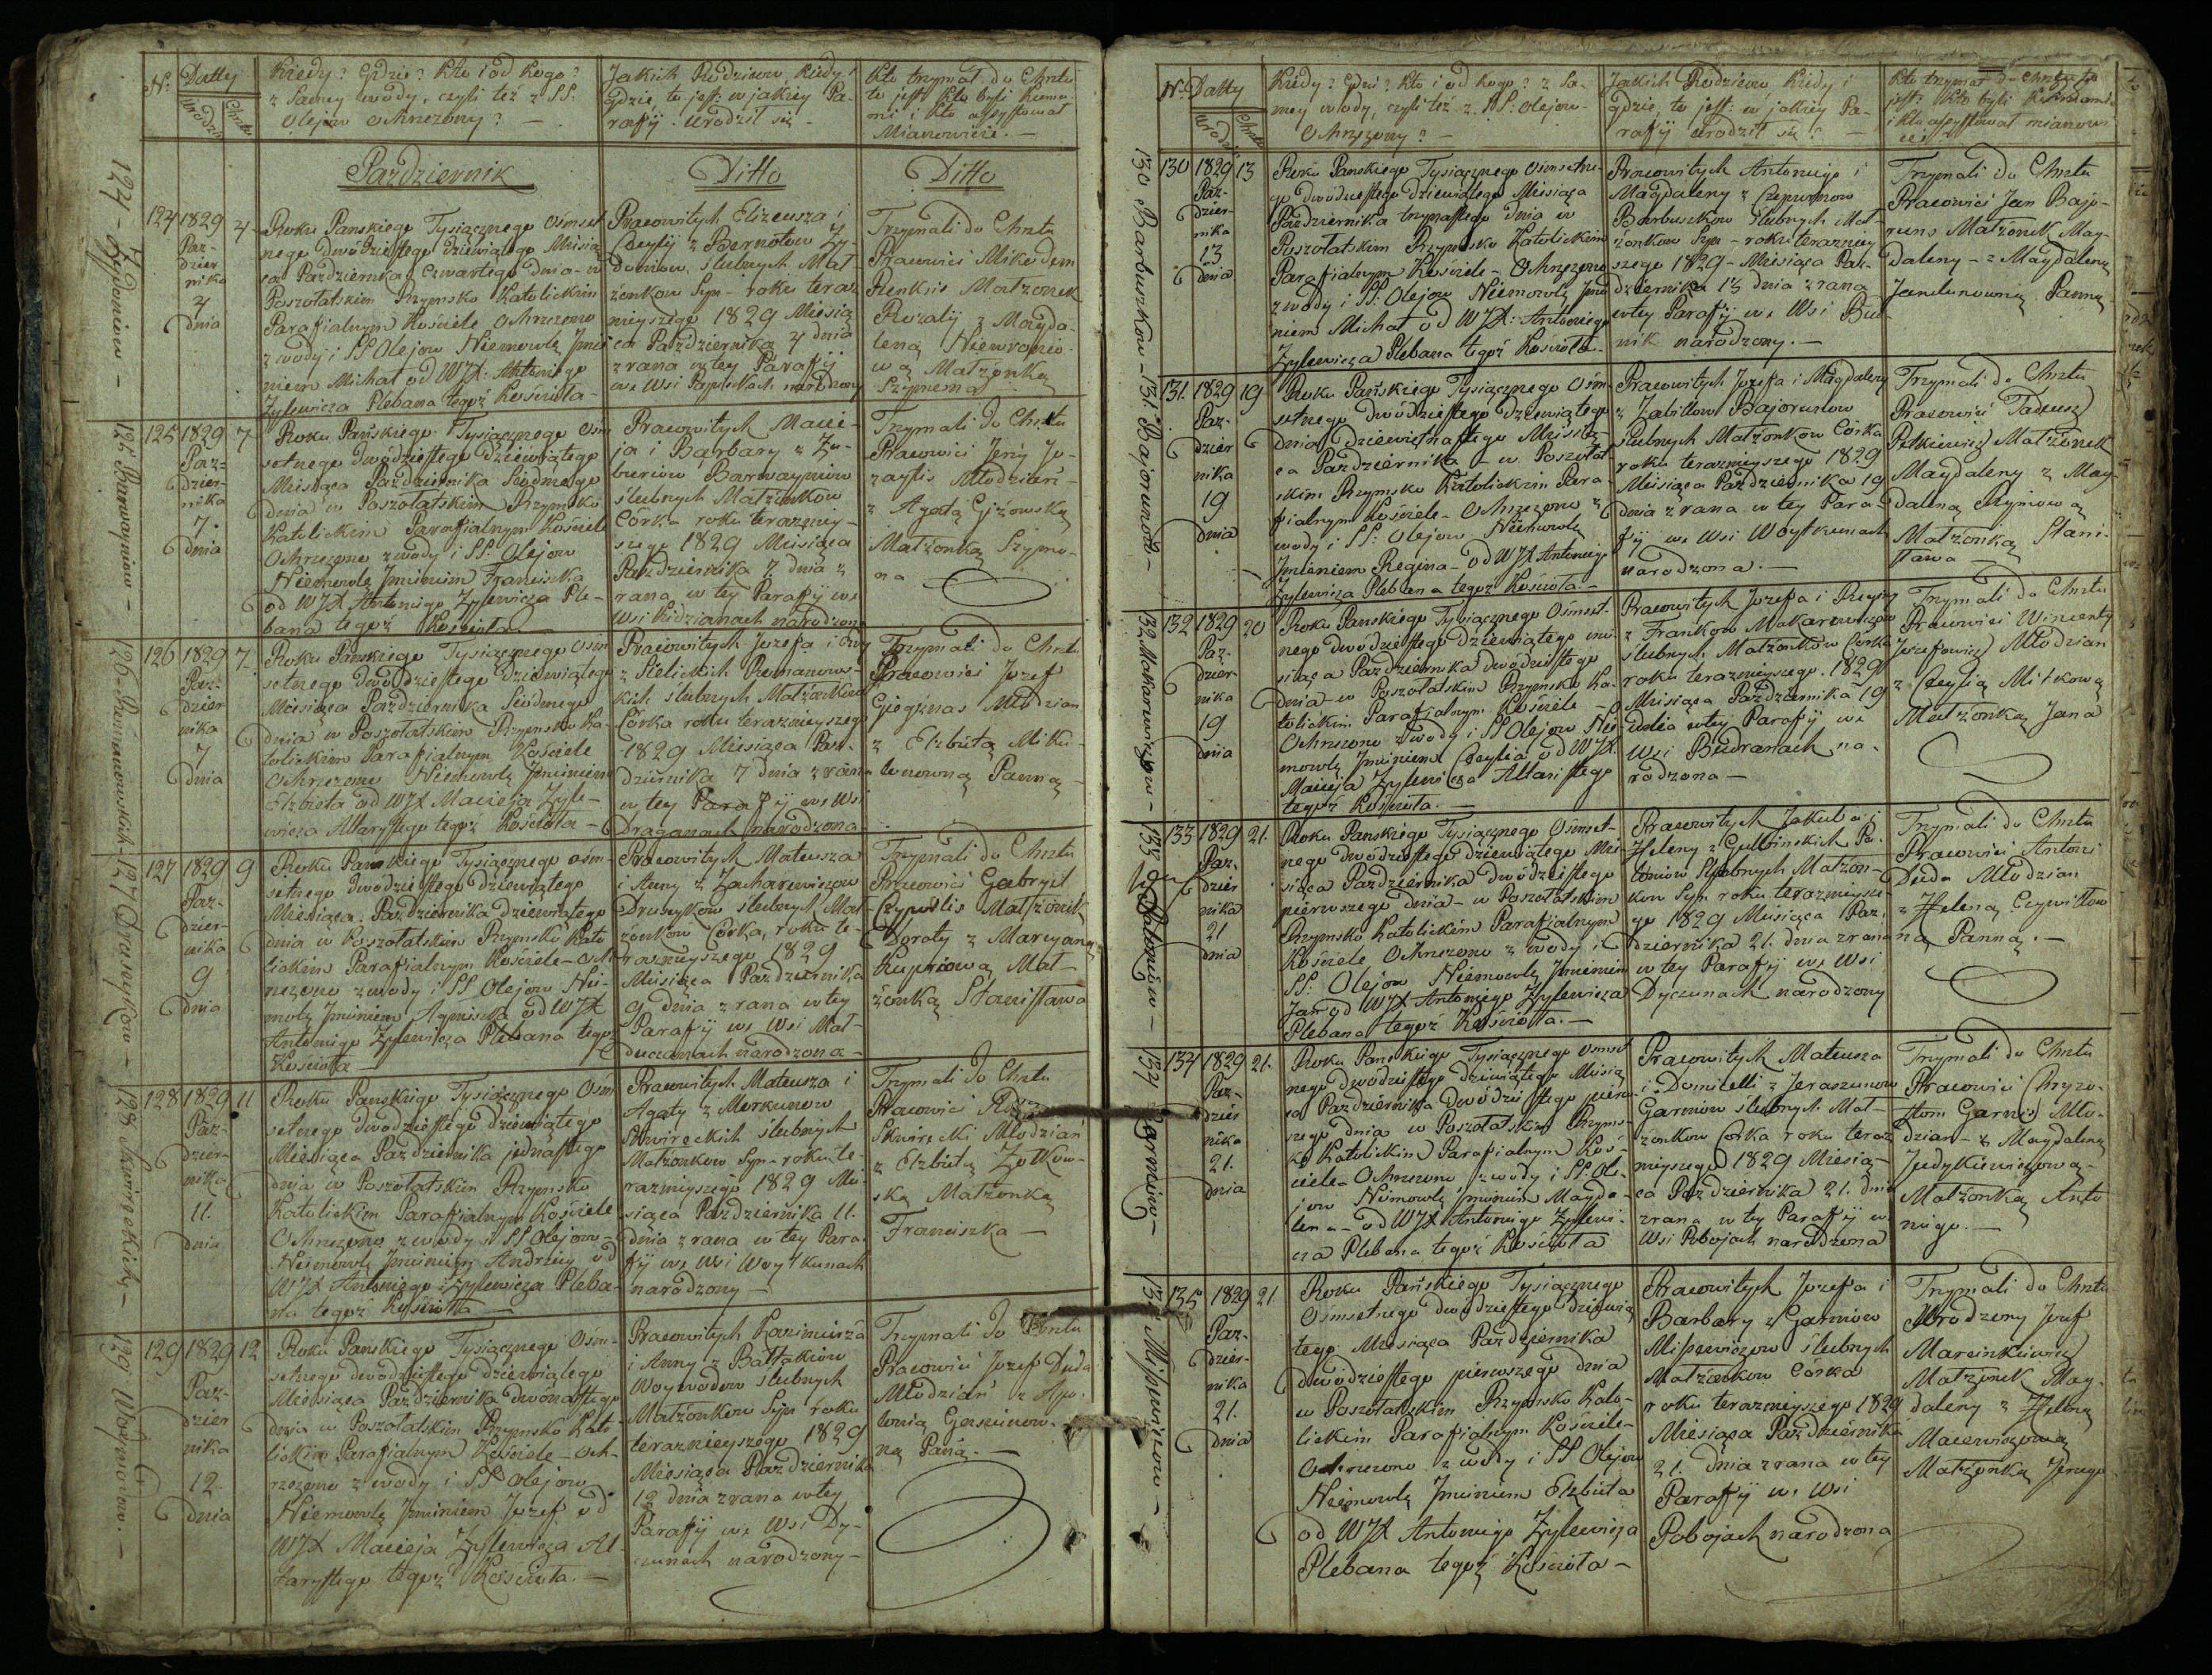 Nr. Datty
Urodzin Chrztu
Kiedy? Gdzie? Kto i od kogo?
z samey wody, czyli też z SS.
Olejow ochrzczony? —
Jakich Rodzicow, kiedy i
gdzie, to jest w jakiey Pa-
rafij urodził się —
Kto trzymał do Chrztu
to jest kto byli Kumo-
mi i kto assystował
Mianowicie. —
Pazdziernik
Ditto
Ditto
124 1829 4
Paz-
dzier
nika
4
dnia
Roku Panskiego Tysiącznego osmset
nego dwódziestego dziewiątego Miesią
ca Pazdziernika Czwartego dnia - w
Poszołatskim Rzymsko Katolickim
Parafialnym Kościele Ochrzczono
z wody i SS Olejow Niemowlę Jmie
niem Michał od WJX. Antoniego
Zylewicza Plebana tegoż Kościoła -
Pracowitych Elizeusza i
Cecylij z Bernotow Zy-
doniow, slubnych Mał-
żonkow Syn - roku teraz
nieyszego 1829 Miesią
ca Pazdziernika 4 dnia
zrana w tey Parafij
we Wsi narodzony
Trzymali do Chrztu
Pracowici Nikodem
Renksis Małżonek
Rozalij z Magda-
leną
wą Małżonką
Szymona
125 1829 7
Paz-
dzier-
nika
7.
dnia
Roku Pańskiego Tysiącznego osm
setnego dwódziestego dziewiątego
Miesiąca Pazdziernika Siódmego
dnia w Poszołatskim Rzymsko
Katolickim Parafialnym Kościele
Ochrzczono z wody i SS: Olejow
Niemowlę Jmieniem Franciszka
od WJX Antoniego Zylewicza Ple-
bana tegoż Kościoła. —
Pracowitych Macie-
ja i Barbary z Zu-
buriow Barwayniow
slubnych Małżonkow
Córka roku terazniey-
szego 1829 Miesiąca
Pazdziernika 7 dnia z
rana w tey Parafij we
Wsi Kidzianach narodzona
Trzymali do Chrztu
Pracowici Jerzy Jo-
zaytis Młodzian
z Agatą Giżowską
Małżonką Szymo-
na
126 1829 7
Paz-
dzier
nika
7
dnia
Roku Panskiego Tysiącznego osm
setnego dwódziestego dziewiątego
Miesiąca Pazdziernika Siódmego
dnia w Poszołatskim Rzymsko Ka-
tolickim Parafialnym Kościele
Ochrzczono Niemowlę Jmieniem
Elzbieta od WJX Macieja Zyle-
wicza Altarystego tegoż Kościoła —
Pracowitych Jozefa i Ewy
z Sielickich Rumanows-
kich slubnych Małżonkow
Córka roku teraznieyszego
1829 Miesiąca Paz-
dziernika 7 dnia zrana
w tey Parafij we Wsi
Draganach narodzona
Trzymali do Chrztu
Pracowici Jozef
Giegznas Młodzian
z Elzbietą Miku-
lenowną Panną
127 1829 9
Paz-
dzier-
nika
9
dnia
Roku Panskiego Tysiącznego osm-
setnego dwódziestego dziewiątego
Miesiąca Pazdziernika dziewiątego
dnia w Poszołatskim Rzymsko Kato
lickim Parafialnym Kościele - Och
rzczono z wody i SS Olejow Nie-
mowlę Jmieniem Agnieszka od WJX
Antoniego Zylewicza Plebana tegoż
Kościoła —
Pracowitych Mateusza
i Anny z Zacharewiczow
Drunykow slubnych Mał-
żonkow Córka, roku te-
raznieyszego 1829
Miesiąca Pazdziernika
9 dnia z rana w tey
Parafij we Wsi Moł-
duczanach narodzona —
Trzymali do Chrztu
Pracowici Gabryel
Czypwilis Małżonek
Doroty z Marcyaną
Kupriową Mał-
żonką Stanisława
128 1829 11
Paz-
dzier-
nika
11.
dnia
Roku Panskiego Tysiącznego Osm
setnego dwódziestego dziewiątego
Miesiąca Pazdziernika jednastego
dnia w Poszołatskim Rzymsko
Katolickim Parafialnym Kościele
Ochrzczono z wody i SS Olejow -
Niemowlę Jmieniem Andrzey od
WJX Antoniego Zylewicza Pleba-
na tegoż Kościoła —
Pracowitych Mateusza i
Agaty z Merkunow
Skwireckich slubnych
Małżonkow Syn - roku te-
raznieyszego 1829 Mie-
siąca Pazdziernika 11.
dnia z rana w tey Para-
fij we Wsi Woytkunach
narodzony —
Trzymali do Chrztu
Pracowici
Skwirecki Młodzian
z Elzbietą Zołkow-
ską Małżonką
Franciszka —
129 1829 12
Paz-
dzier
nika
12.
dnia
Roku Panskiego Tysiącznego Ośm-
setnego dwódziestego dziewiątego
Miesiąca Pazdziernika dwónastego
dnia w Poszołatskim Rzymsko Kato
lickim Parafialnym Kościele - Och-
rzczono z wody i SS Olejow
Niemowlę Jmieniem Jozef od
WJX Macieja Zylewicza Al-
tarystego tegoż Kościoła. —
Pracowitych Kazimierza
i Anny z Baltakiow
Woynodow slubnych
Małżonkow Syn roku
teraznieyszego 1829
Miesiąca Pazdziernika
12 dnia z rana w tey
Parafij we Wsi Dy-
czunach narodzony —
Trzymali do Chrztu
Pracowici Jozef Duda
Młodzian z Apo-
lonią Gersunow-
ną Panną. —
124 - Zydoniow -
125 Barwayniow -
126 Rumanowskich
127 Drunykow -
128 Skwireckich -
Nr. Datty
Urodzin Chrztu
Kiedy? Gdzie? Kto i od kogo? z sa-
mey wody, czyli też z SS: Olejow
Ochrzczony? —
Jakich Rodzicow, kiedy i
gdzie, to jest w jakiey Pa-
rafij urodził się? —
Kto trzymał do Chrztu to
jest: kto byli Kumami
i kto assystował mianowi
cie
130 1829 13
Paz-
dzier-
nika
13
dnia
Roku Panskiego Tysiącznego osmsetne-
go dwódziestego dziewiątego Miesiąca
Pazdziernika trzynastego dnia w
Poszołatskim Rzymsko Katolickim
Parafialnym Kościele - Ochrzczono
z wody i SS: Olejow Niemowlę Jmie
niem Michał od WJX: Antoniego
Zylewicza Plebana tegoż Kościoła -
Pracowitych Antoniego i
Magdaleny z Czepurnow
Barbuszkow slubnych Mał-
żonkow Syn - roku terazniey
szego 1829 - Miesiąca Paz-
dziernika 13 dnia z rana
w tey Parafij we Wsi Bud-
nik narodzony. —
Trzymali do Chrztu
Pracowici Jan Bajo-
runs Małżonek Mag-
daleny - z Magdaleną
Janelunowną Panną
131. 1829 19
Paz-
dzier
nika
19
dnia
Roku Pańskiego Tysiącznego ośm-
setnego dwódziestego dziewiątego
dnia dziewietnastego Miesią-
ca Pazdziernika - w Poszołat
skim Rzymsko Katolickim Para-
fialnym Kościele - Ochrzczono z
wody i SS: Olejow Niemowlę
Jmieniem Regina - od WJX Antoniego
Zylewicza Plebana tegoż Kościoła. —
Pracowitych Jozefa i Magdaleny
z Zabiłłow Bajorunow
slubnych Małżonkow Córka
roku teraznieyszego 1829
Miesiąca Pazdziernika 19
dnia z rana w tey Para-
fij we Wsi Woytkunach
narodzona. —
Trzymali do Chrztu
Pracowici Tadeusz
Petkiewicz Małżonek
Magdaleny z Mag-
daleną Rymową
Małżonką Stani-
sława —
132 1829 20
Paz-
dzier-
nika
19
dnia
Roku Panskiego Tysiącznego Osmset-
nego dwódziestego dziewiątego mie-
siąca Pazdziernika dwódziestego
dnia w Poszołatskim Rzymsko Ka-
tolickim Parafialnym Kościele -
Ochrzczono z wody i SS Olejow Nie
mowlę Jmieniem Cecylia od WJX
Macieja Zylewicza Altarystego
tegoż Kościoła. —
Pracowitych Jozefa i Reginy
z Frankow Makarewiczow
slubnych Małżonkow Córka
roku teraznieyszego 1829
Miesiąca Pazdziernika 19
dnia w tey Parafij we
Wsi Budranach na-
rodzona —
Trzymali do Chrztu
Pracowici Wincenty
Jozefowicz Młodzian
z Cecylią Mitkową
Małżonką Jana
133 1829 21.
Paz-
dzier
nika
21
dnia
Roku Panskiego Tysiącznego Osmset-
nego dwódziestego dziewiątego Mie-
siąca Pazdziernika dwódziestego
pierwszego dnia - w Poszołatskim
Rzymsko Katolickim Parafialnym
Kościele Ochrzczono z wody i
SS: Olejow Niemowlę Jmieniem
Jan od WJX Antoniego Zylewicza
Plebana tegoż Kościoła. —
Pracowitych Jakuba i
Heleny z Gulbinskich Pa-
toniow Slubnych Małżon-
kow Syn roku terazniejsze-
go 1829 Miesiąca Paz-
dziernika 21. dnia zrana
w tey Parafij we Wsi
Dyczunach narodzony
Trzymali do Chrztu
Pracowici Antoni
Duda Młodzian
z Heleną Czywiłow
ną Panną. —
134 1829 21.
Paz-
dzier
nika
21.
dnia
Roku Panskiego Tysiącznego Osmset
nego dwódziestego dziewiątego Miesią
ca Pazdziernika dwódziestego pierw-
szego dnia w Poszołatskim Rzyms-
ko Katolickim Parafialnym Koś-
ciele Ochrzczono z wody i SS Ole-
jow Niemowlę Jmieniem Magda-
lena - od WJX Antoniego Zylewi-
cza Plebana tegoż Kościoła
Pracowitych Mateusza
i Domicelli z Jeraszunow
Garniow slubnych Mał-
żonkow Corka roku teraz
nieyszego 1829 Miesią-
ca Pazdziernika 21. dnia
zrana w tey Parafij we
Wsi Pobojach narodzona
Trzymali do Chrztu
Pracowici Chryzo-
stom Garnis Mło-
dzian - z Magdaleną
Jedykiewiczową -
Małżonką Anto
niego. —
135 1829 21.
Paz-
dzier-
nika
21.
dnia
Roku Pańskiego Tysiącznego
Osmsetnego dwódziestego dziewią
tego Miesiąca Pazdziernika
dwódziestego pierwszego dnia
w Poszołatskim Rzymsko Kato-
lickim Parafialnym Kościele -
Ochrzczono z wody i SS Olejow
Niemowlę Jmieniem Elzbieta
od WJX Antoniego Zylewicza
Plebana tegoż Kościoła —
Pracowitych Jozefa i
Barbary z Garniow
Misiewiczow slubnych
Małżonkow Córka
roku teraznieyszego 1829
Miesiąca Pazdziernika
21. dnia z rana w tey
Parafij we Wsi
Pobojach narodzona
Trzymali do Chrztu
Urodzony Jozef
Marcinkiewicz
Małżonek Mag-
daleny z Heleną
Macewiczową
Małżonką Jerzego
130 Barbuszkow -
131. Bajorunow -
132 Makarewiczow -
133 Patoniow -
134 Garniow -
135 Misiewiczow -